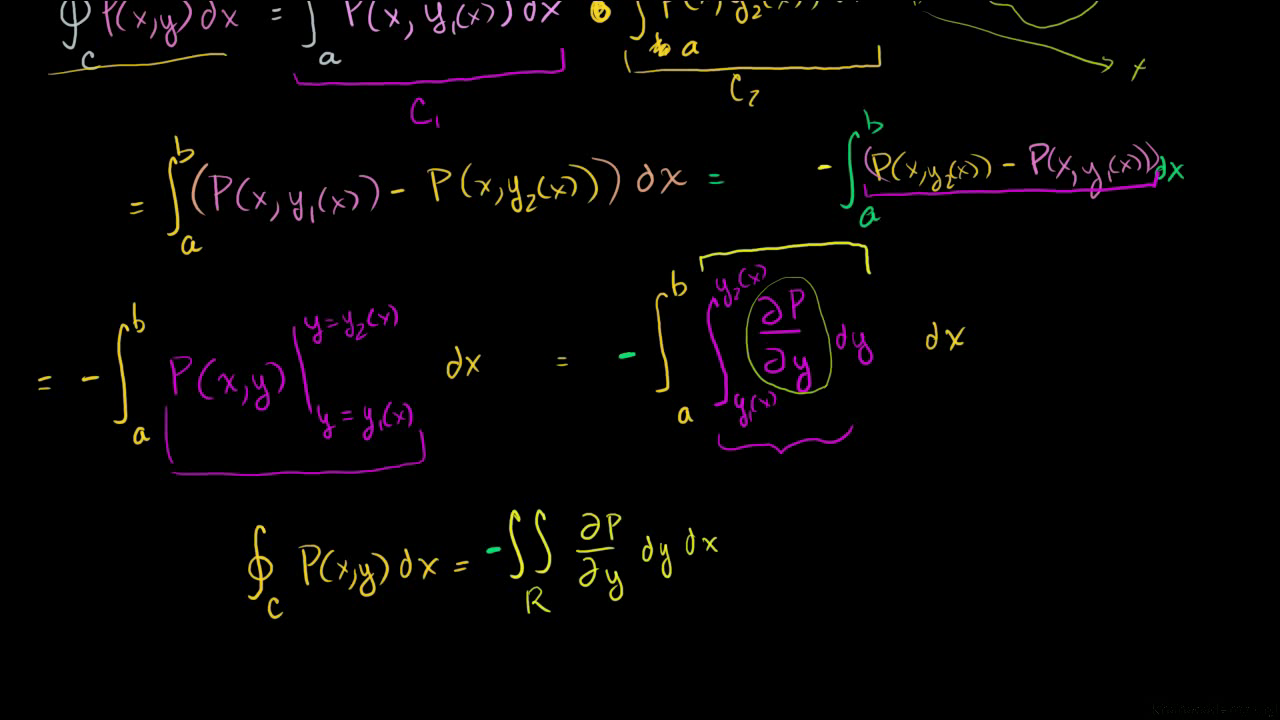 ∮_C P(x,y) dx = ∫_a P(x, y₁(x)) dx ∫_a P(x, y₂(x))
x
C₁ C₂
= ∫_a^b (P(x, y₁(x)) - P(x, y₂(x))) dx = - ∫_a^b (P(x, y₂(x)) - P(x, y₁(x))) dx
= - ∫_a^b P(x,y) |_{y = y₁(x)}^{y = y₂(x)} dx = - ∫_a^b ∫_{y₁(x)}^{y₂(x)} ∂P/∂y dy dx
∮_C P(x,y) dx = - ∬_R ∂P/∂y dy dx